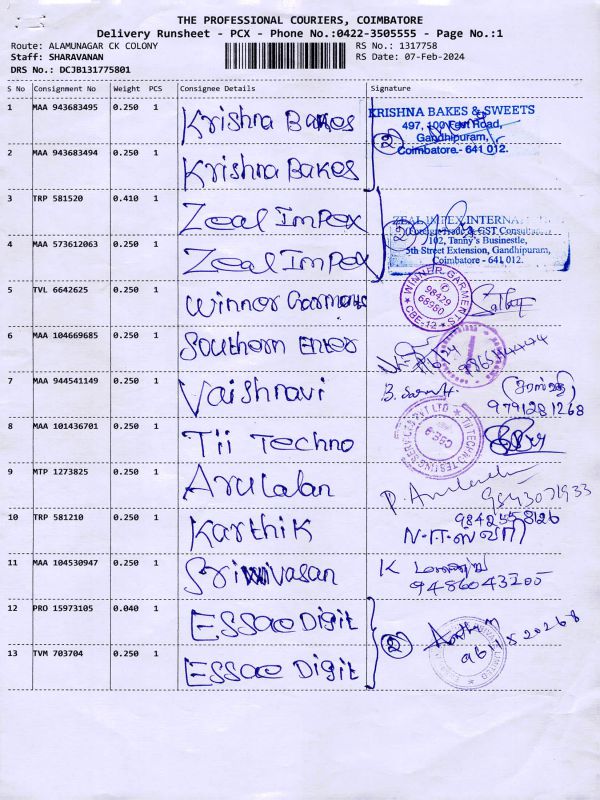 THE PROFESSIONAL COURIERS, COIMBATORE
Delivery Runsheet - PCX - Phone No.:0422-3505555 - Page No.:1
Route: ALAMUNAGAR CK COLONY
RS No.: 1317758
Staff: SHARAVANAN
RS Date: 07-Feb-2024
DRS No.: DCJB131775801
S No Consignment No Weight PCS Consignee Details Signature
1 MAA 943683495 0.250 1 Krishna Bakes
KRISHNA BAKES & SWEETS
497, 100 Feet Road,
Gandhipuram,
Coimbatore - 641 012.
2
2 MAA 943683494 0.250 1 Krishna Bakes
3 TRP 581520 0.410 1 Zeal Impex
ZEAL IMPEX INTERNA
102, Tanny's Businestle,
5th Street Extension, Gandhipuram,
Coimbatore - 641 012.
2
4 MAA 573612063 0.250 1 Zeal Impex
5 TVL 6642625 0.250 1 Winner Garments
WINNER GARMENTS
98429
68950
CBE-12
6 MAA 104669685 0.250 1 Southern Enter
7 MAA 944541149 0.250 1 Vaishnavi
9791281268
8 MAA 101436701 0.250 1 Tii Techno
TII TECHNO TESTING SERVICES PVT LTD
9 MTP 1273825 0.250 1 Arulalan
9843071933
10 TRP 581210 0.250 1 Karthik
9842558126
11 MAA 104530947 0.250 1 Srinivasan
K
9486043200
12 PRO 15973105 0.040 1 Essae Digit
2
13 TVM 703704 0.250 1 Essae Digit